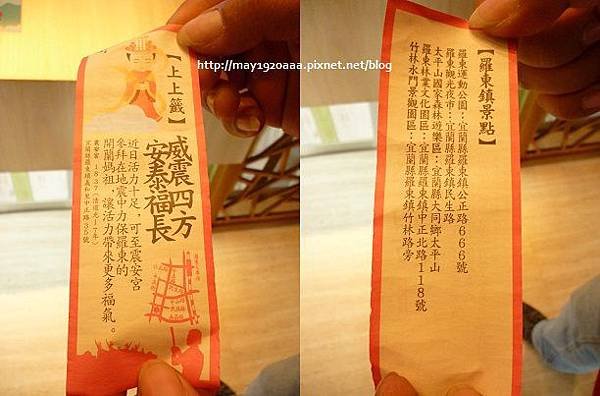 http://may1920aaa.pixnet.net/blog
【上上籤】
威震四方
安泰福長
近日活力十足,可至震安宮
參拜在地震中力保羅東的
開蘭媽祖,讓活力帶來更多福氣。
震安宮:1837(清道光17年)
宜蘭縣羅東鎮義和里中正路35號
【羅東鎮景點】
羅東運動公園:宜蘭縣羅東鎮公正路666號
羅東觀光夜市:宜蘭縣羅東鎮民生路
太平山國家森林遊樂區:宜蘭縣大同鄉太平山
羅東林業文化園區:宜蘭縣羅東鎮中正北路118號
竹林水門景觀園區:宜蘭縣羅東鎮竹林路旁